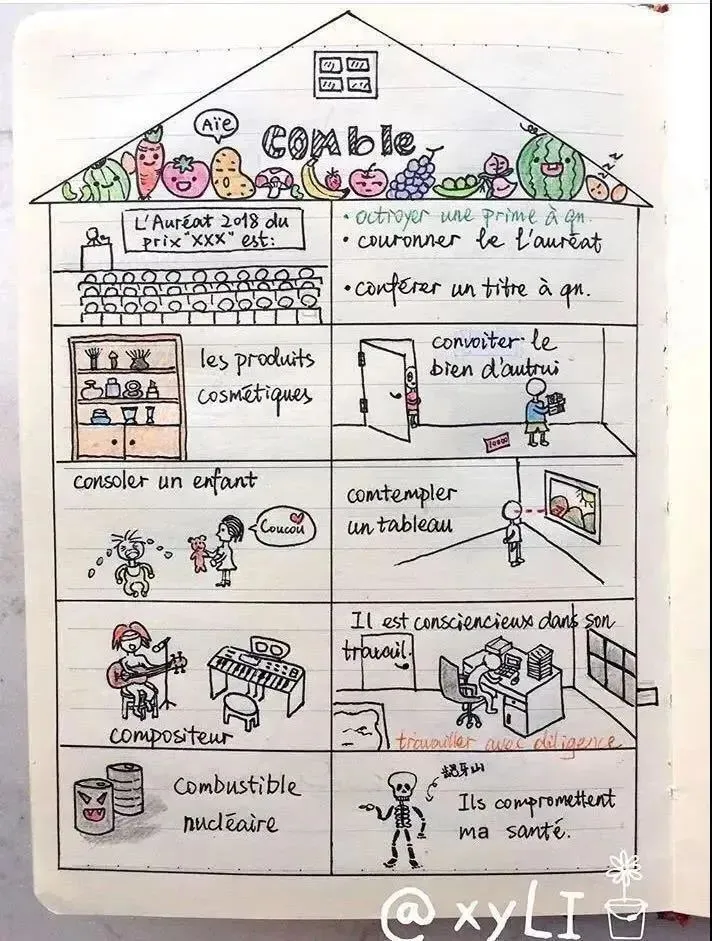 Aïe
COMble
L'Auréat 2018 du
prix "XXX" est:
• octroyer une prime à qn.
• couronner le l'auréat
• conférer un titre à qn.
les produits
cosmétiques
convoiter le
bien d'autrui
10000
consoler un enfant
Coucou
comtempler
un tableau
compositeur
Il est consciencieux dans son
travail.
travailler avec diligence
Combustible
nucléaire
Ils compromettent
ma santé.
@xyLI